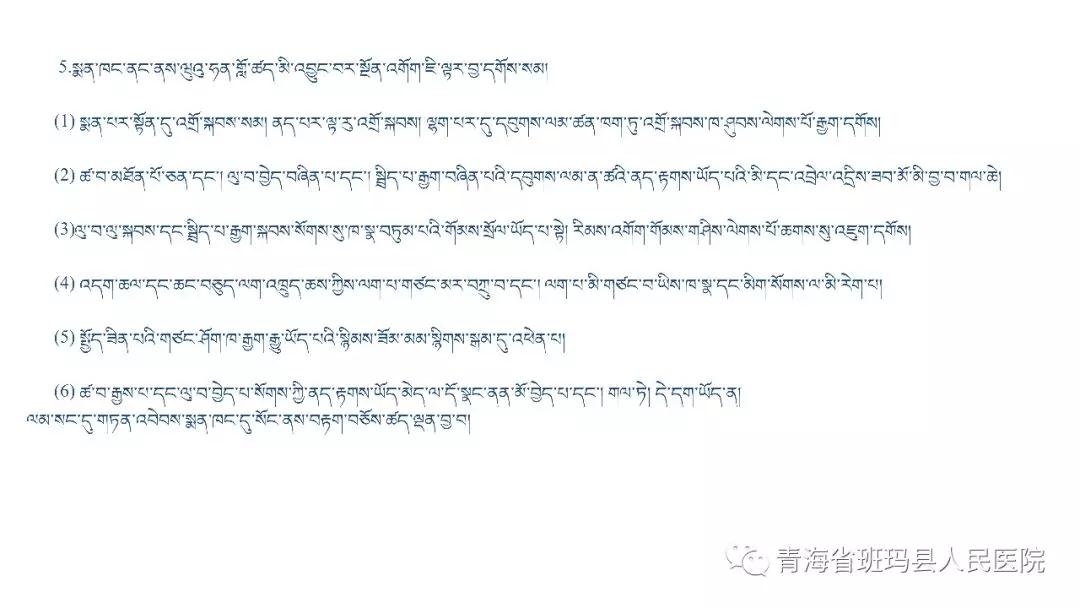 5.སྨན་ཁང་ནང་ནས་ཝུའུ་ཧན་གློ་ཚད་མི་འབྱུང་བར་སྔོན་འགོག་ཇི་ལྟར་བྱ་དགོས་སམ།
(1) སྨན་པར་སྟོན་དུ་འགྲོ་སྐབས་སམ། ནད་པར་ལྟ་རུ་འགྲོ་སྐབས། ལྷག་པར་དུ་དབུགས་ལམ་ཚན་ཁག་ཏུ་འགྲོ་སྐབས་ཁ་ཤུབས་ལེགས་པོ་རྒྱག་དགོས།
(2) ཚ་བ་མཐོན་པོ་ཅན་དང་། ལུ་བ་བྱེད་བཞིན་པ་དང་། སྦྲིད་པ་རྒྱག་བཞིན་པའི་དབུགས་ལམ་ན་ཚའི་ནད་རྟགས་ཡོད་པའི་མི་དང་འབྲེལ་འདྲིས་ཟབ་མོ་མི་བྱ་བ་གལ་ཆེ།
(3)ལུ་བ་ལུ་སྐབས་དང་སྦྲིད་པ་རྒྱག་སྐབས་སོགས་སུ་ཁ་སྣ་བཏུམ་པའི་གོམས་སྲོལ་ཡོད་པ་སྟེ། རིམས་འགོག་གོམས་གཤིས་ལེགས་པོ་ཆགས་སུ་འཇུག་དགོས།
(4) འདག་ཆལ་དང་ཆང་བཅུད་ལག་འཁྲུད་ཆས་ཀྱིས་ལག་པ་གཙང་མར་བཀྲུ་བ་དང་། ལག་པ་མི་གཙང་བ་ཡིས་ཁ་སྣ་དང་མིག་སོགས་ལ་མི་རེག་པ།
(5) སྤྱོད་ཟིན་པའི་གཙང་ཤོག་ཁ་རྒྱག་རྒྱུ་ཡོད་པའི་སྙིམས་ཟོམ་མམ་སྙིགས་སྒམ་དུ་འཕེན་པ།
(6) ཚ་བ་རྒྱས་པ་དང་ལུ་བ་བྱེད་པ་སོགས་ཀྱི་ནད་རྟགས་ཡོད་མེད་ལ་དོ་སྣང་ནན་མོ་བྱེད་པ་དང་། གལ་ཏེ། དེ་དག་ཡོད་ན།
ལམ་སང་དུ་གཏན་འབེབས་སྨན་ཁང་དུ་སོང་ནས་བརྟག་བཅོས་ཚད་ལྡན་བྱ་བ།
青海省班玛县人民医院